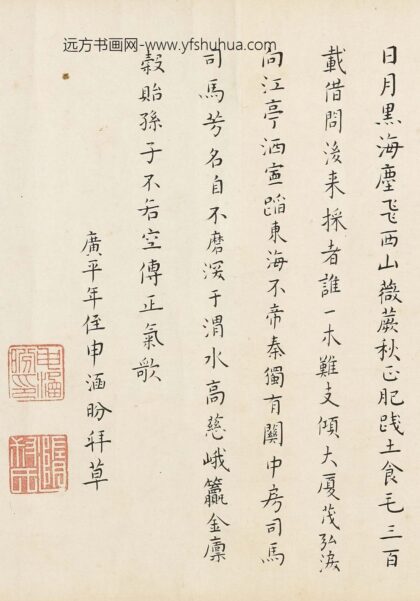 远方书画网-www.yfshuhua.com
日月黑海塵飞西山薇蕨秋正肥践土食毛三百
載借問後来採者誰一木難支傾大厦茂弘淚
向江亭洒寧蹈東海不帝秦獨有關中房司馬
司馬芳名自不磨深于渭水高慈峨籯金廪
穀貽孫子不若空傳正氣歌
廣平年侄申涵盼拜草
申涵
盼印